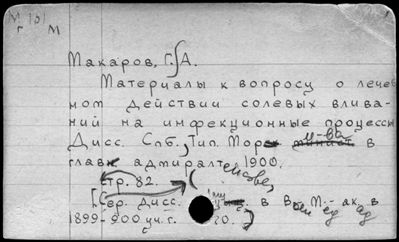 М 101
г М
Макаров, Г. А.
Материалы к вопросу о лечеб
ном действии солевых влива-
ний на инфекционные процессы
Дисс. Спб., Тип. Мор м-ва в
главн адмиралтействе, 1900.
стр. 82.
[Сер. дисс. в Воен Мед ак. ад
1899-900 уч. г. 20.]